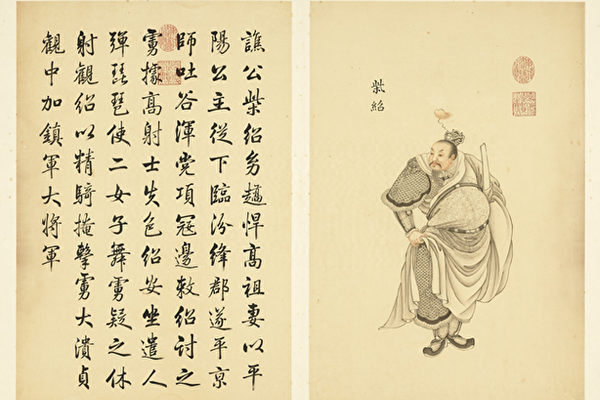 譙公柴紹幼趫悍高祖妻以平
陽公主從下臨汾絳郡遂平京
師吐谷渾党項寇邊敕紹討之
虜據高射士失色紹安坐遣人
彈琵琶使二女子舞虜疑之休
射觀紹以精騎掩擊虜大潰貞
觀中加鎮軍大將軍
柴紹